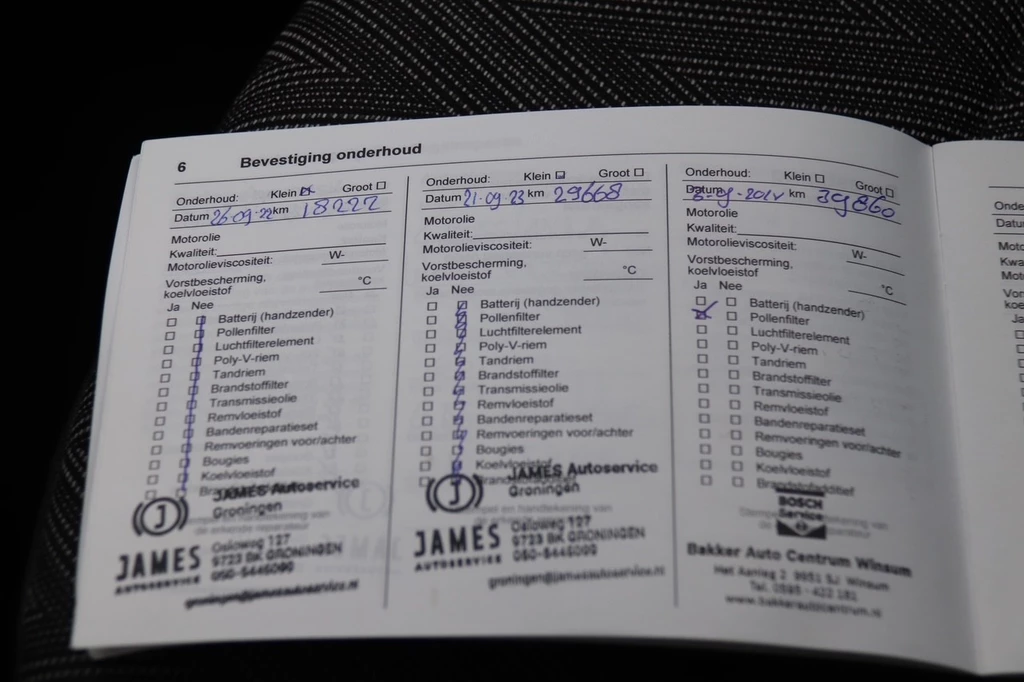 6 Bevestiging onderhoud
Onderhoud: Klein Groot
Datum 26-09-22 km 18222
Motorolie
Kwaliteit:
Motorolieviscositeit: W-
Vorstbescherming,
koelvloeistof °C
Ja Nee
Batterij (handzender)
Pollenfilter
Luchtfilterelement
Poly-V-riem
Tandriem
Brandstoffilter
Transmissieolie
Remvloeistof
Bandenreparatieset
Remvoeringen voor/achter
Bougies
Koelvloeistof
JAMES Autoservice
Groningen
JAMES
AUTOSERVICE
Osloweg 127
9723 BK GRONINGEN
050-5445090
groningen@jamesautoservice.nl
Onderhoud: Klein Groot
Datum 21-09-23 km 29668
Motorolie
Kwaliteit:
Motorolieviscositeit: W-
Vorstbescherming,
koelvloeistof °C
Ja Nee
Batterij (handzender)
Pollenfilter
Luchtfilterelement
Poly-V-riem
Tandriem
Brandstoffilter
Transmissieolie
Remvloeistof
Bandenreparatieset
Remvoeringen voor/achter
Bougies
Koelvloeistof
JAMES Autoservice
Groningen
JAMES
AUTOSERVICE
Osloweg 127
9723 BK GRONINGEN
050-5445090
groningen@jamesautoservice.nl
Onderhoud: Klein Groot
Datum km 39860
Motorolie
Kwaliteit:
Motorolieviscositeit: W-
Vorstbescherming,
koelvloeistof °C
Ja Nee
Batterij (handzender)
Pollenfilter
Luchtfilterelement
Poly-V-riem
Tandriem
Brandstoffilter
Transmissieolie
Remvloeistof
Bandenreparatieset
Remvoeringen voor/achter
Bougies
Koelvloeistof
Brandstofadditief
BOSCH
Service
Bakker Auto Centrum Winsum
Het Aanleg 2 9951 SJ Winsum
Tel. 0595 - 422 181
www.bakkerautocentrum.nl